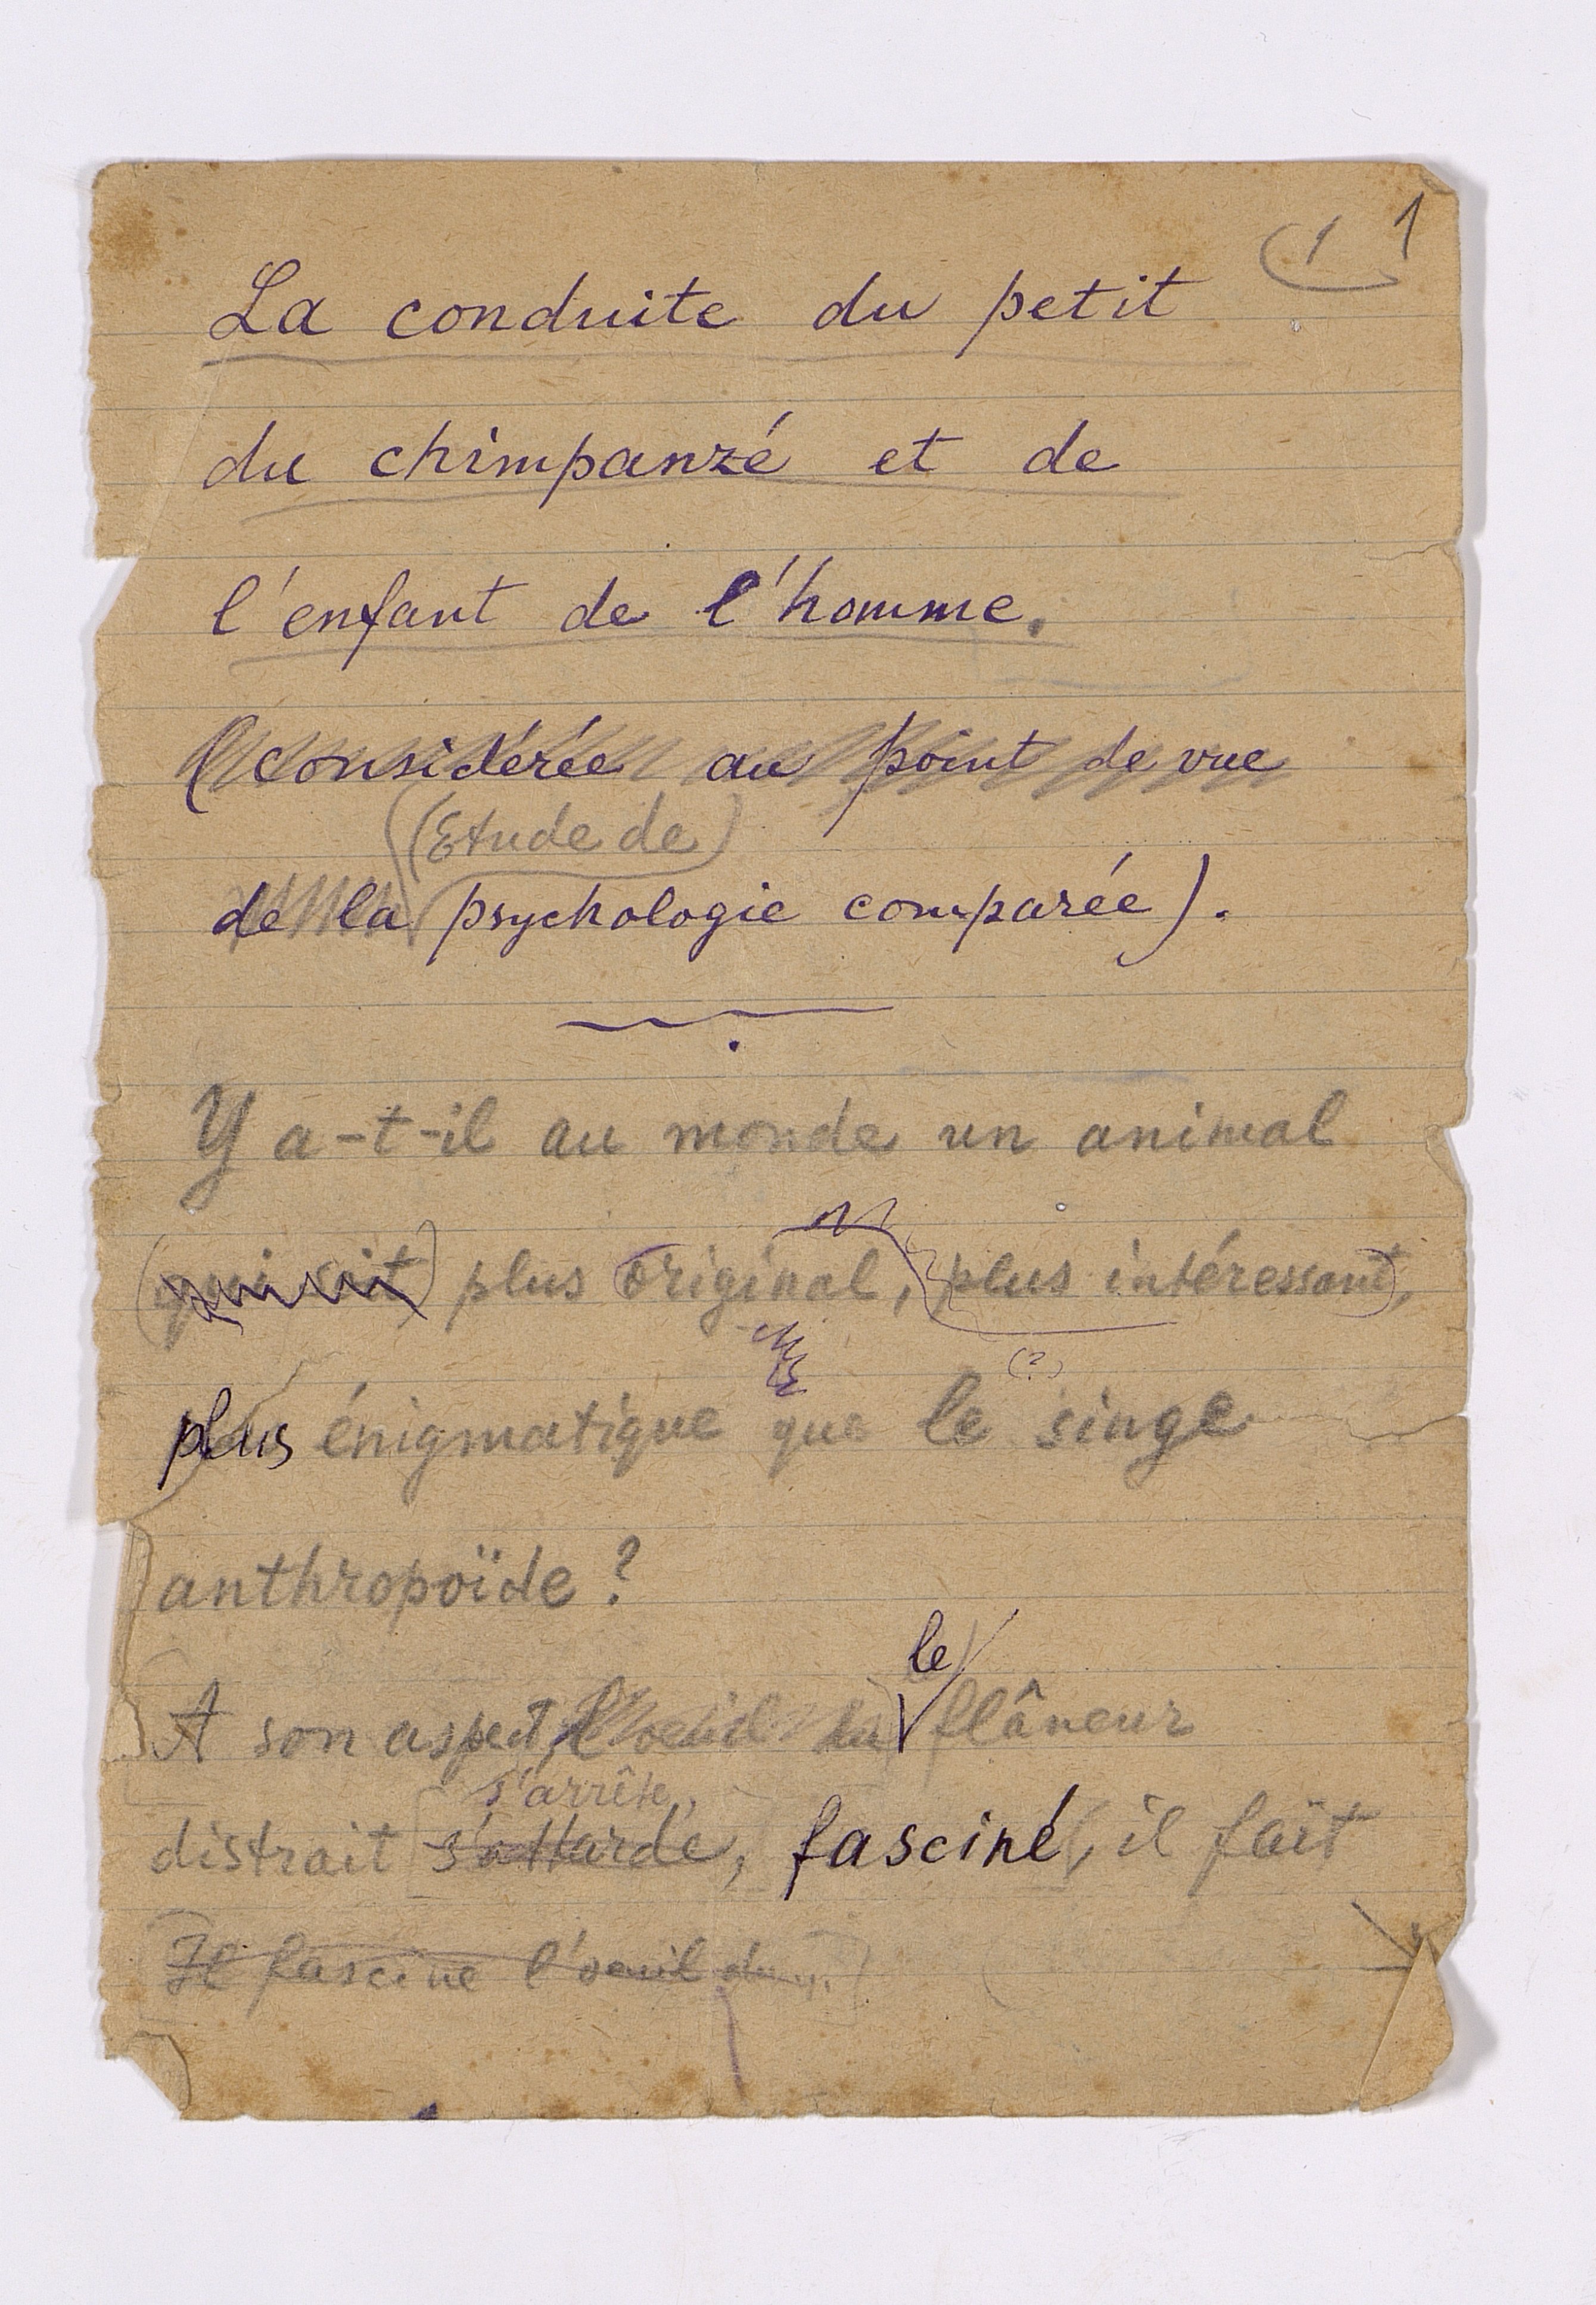 1 1
La conduite du petit
du chimpanzé et de
l'enfant de l'homme.
(considérée au point de vue
(Etude de)
de la psychologie comparée).
Y a-t-il au monde un animal
(qui soit) plus original, plus intéressant,
(?)
plus énigmatique que le singe
anthropoïde ?
le
A son aspect, l'oeuil du flâneur
s'arrête,
distrait s'attarde, fasciné, il fait
Il fascine l'oeuil du